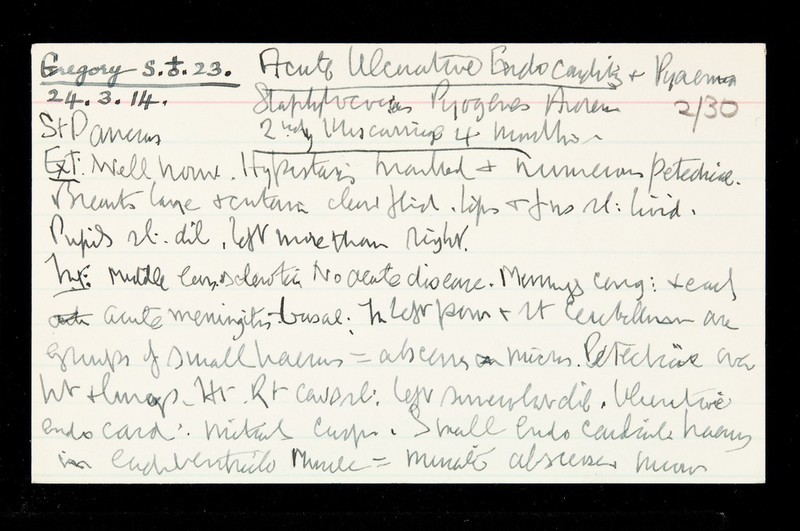 Gregory S.t. 23. Acute Ulcerative Endocarditis + Pyaemia
24.3.14. Staphylococcus Pyogenes Aureus 2/30
St Pancras 2ndy Miscarriage 4 months
Ext: Well nour. Hypostasis marked + numerous petechiae.
Breasts large + contain clear fluid. Lips + fns sl: livid.
Pupils sl: dil, left more than right.
Int: Middle ears sclerotic No acute disease. Meninges cong: + early
acute meningitis basal. In left pons + rt Cerebellum are
groups of small haems = abscess micros. Petechiae over
ht + lungs. Ht. Rt cav sl: left somewhat dil. Ulcerative
endocard: mitral cusps. Small endocardial haems
in each ventricle Muscle = minute abscesses micros